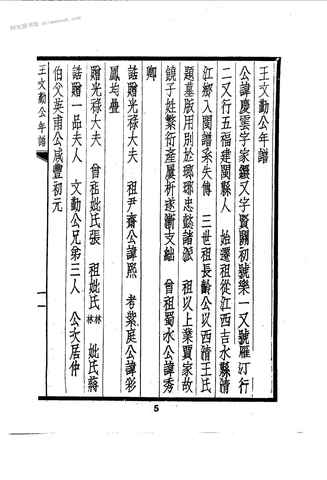 王文勤公年譜
公諱慶雲字家鐶又字賢關初號樂一又號雁汀行
二又行五福建閩縣人　始遷祖從江西吉水縣清
江鄉入閩譜系失傳　三世祖長齡公以西清王氏
題墓版用別於瑯琊忠懿諸派　祖以上業賈家故
饒子姓繁衍產屢析遂漸支絀　曾祖蜀水公諱秀
卿
誥贈光祿大夫　祖尹齋公諱熙　考紫庭公諱
鳳均疊
贈光祿大夫　曾祖妣氏張　祖妣氏林林　妣氏蔣
誥贈一品夫人　文勤公兄弟三人　公次居仲
伯父英甫公咸豐初元
王文勤公年譜
一
5